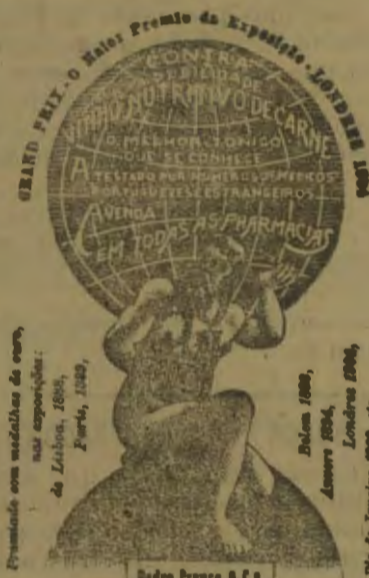 GRAND PRIX - O Maior Premio da Exposição - LONDRES
CONTRA
DEBILIDADE
VINHO NUTRITIVO DE CARNE
O MELHOR TONICO
QUE SE CONHECE
ATTESTADO POR NUMEROSOS MEDICOS
PORTUGUEZES E ESTRANGEIROS
Á VENDA
EM TODAS AS PHARMACIAS
Premiado com medalhas de ouro,
nas exposições:
de Lisboa, 1888,
Paris,
Belem
Anvers 1894,
Londres
Pedro Franco & C.ª